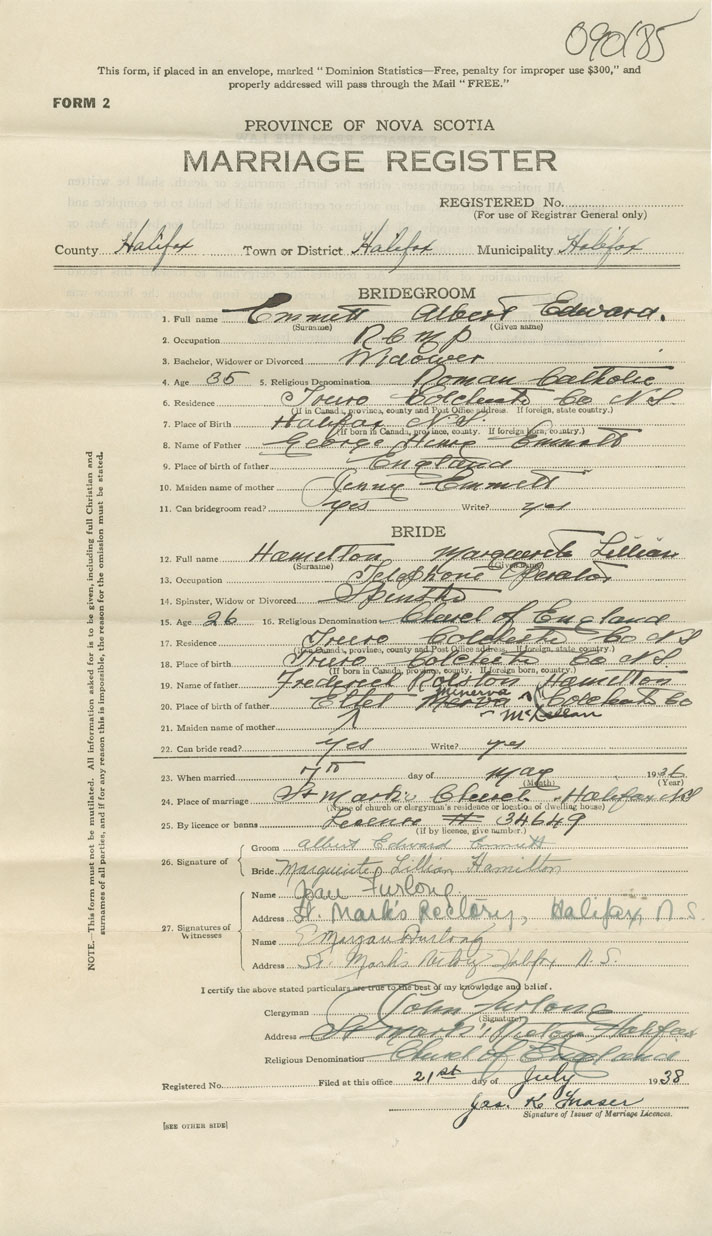 090185
This form, if placed in an envelope, marked "Dominion Statistics—Free, penalty for improper use $300," and
properly addressed will pass through the Mail "FREE."
FORM 2
PROVINCE OF NOVA SCOTIA
MARRIAGE REGISTER
REGISTERED No.
(For use of Registrar General only)
County Halifax Town or District Halifax Municipality Halifax
BRIDEGROOM
1. Full name Emmett Albert Edward.
(Surname) (Given name)
2. Occupation R C M P
3. Bachelor, Widower or Divorced Widower
4. Age 35 5. Religious Denomination Roman Catholic
6. Residence Truro Colchester Co N.S.
(If in Canada, province, county and Post Office address. If foreign, state country.)
7. Place of Birth Halifax N.S.
(If born in Canada, province, county. If foreign born, country.)
8. Name of Father George Henry Emmett
9. Place of birth of father England
10. Maiden name of mother Jenny Emmett
11. Can bridegroom read? yes Write? yes
BRIDE
12. Full name Hamilton Marguerite Lillian
(Surname) (Given name)
13. Occupation Telephone Operator
14. Spinster, Widow or Divorced Spinster
15. Age 26 16. Religious Denomination Church of England
17. Residence Truro Colchester Co N S
(If in Canada, province, county and Post Office address. If foreign, state country.)
18. Place of birth Truro Colchester Co N.S.
(If born in Canada, province, county. If foreign born, country.)
19. Name of father Frederick Rolston Hamilton
20. Place of birth of father Minerva Colchester Co
21. Maiden name of mother McLellan
22. Can bride read? yes Write? yes
23. When married 7th day of May 1936
(Month) (Year)
24. Place of marriage St Mark's Church Halifax NS
(Name of church or clergyman's residence or location of dwelling house)
25. By licence or banns Licence # 34649
(If by licence, give number.)
26. Signature of
Groom Albert Edward Emmett
Bride Marguerite Lillian Hamilton
27. Signatures of Witnesses
Name Joan Furlong
Address St. Mark's Rectory, Halifax, N.S.
Name E Morgan Furlong
Address St. Mark's Rectory Halifax N.S.
I certify the above stated particulars are true to the best of my knowledge and belief.
Clergyman John Furlong
(Signature)
Address St Mark's Rectory Halifax
Religious Denomination Church of England
Registered No. Filed at this office 21st day of July 1938
Jas. K Fraser
Signature of Issuer of Marriage Licences.
[SEE OTHER SIDE]
NOTE.—This form must not be mutilated. All information asked for is to be given, including full Christian and
surnames of all parties, and if for any reason this is impossible, the reason for the omission must be stated.